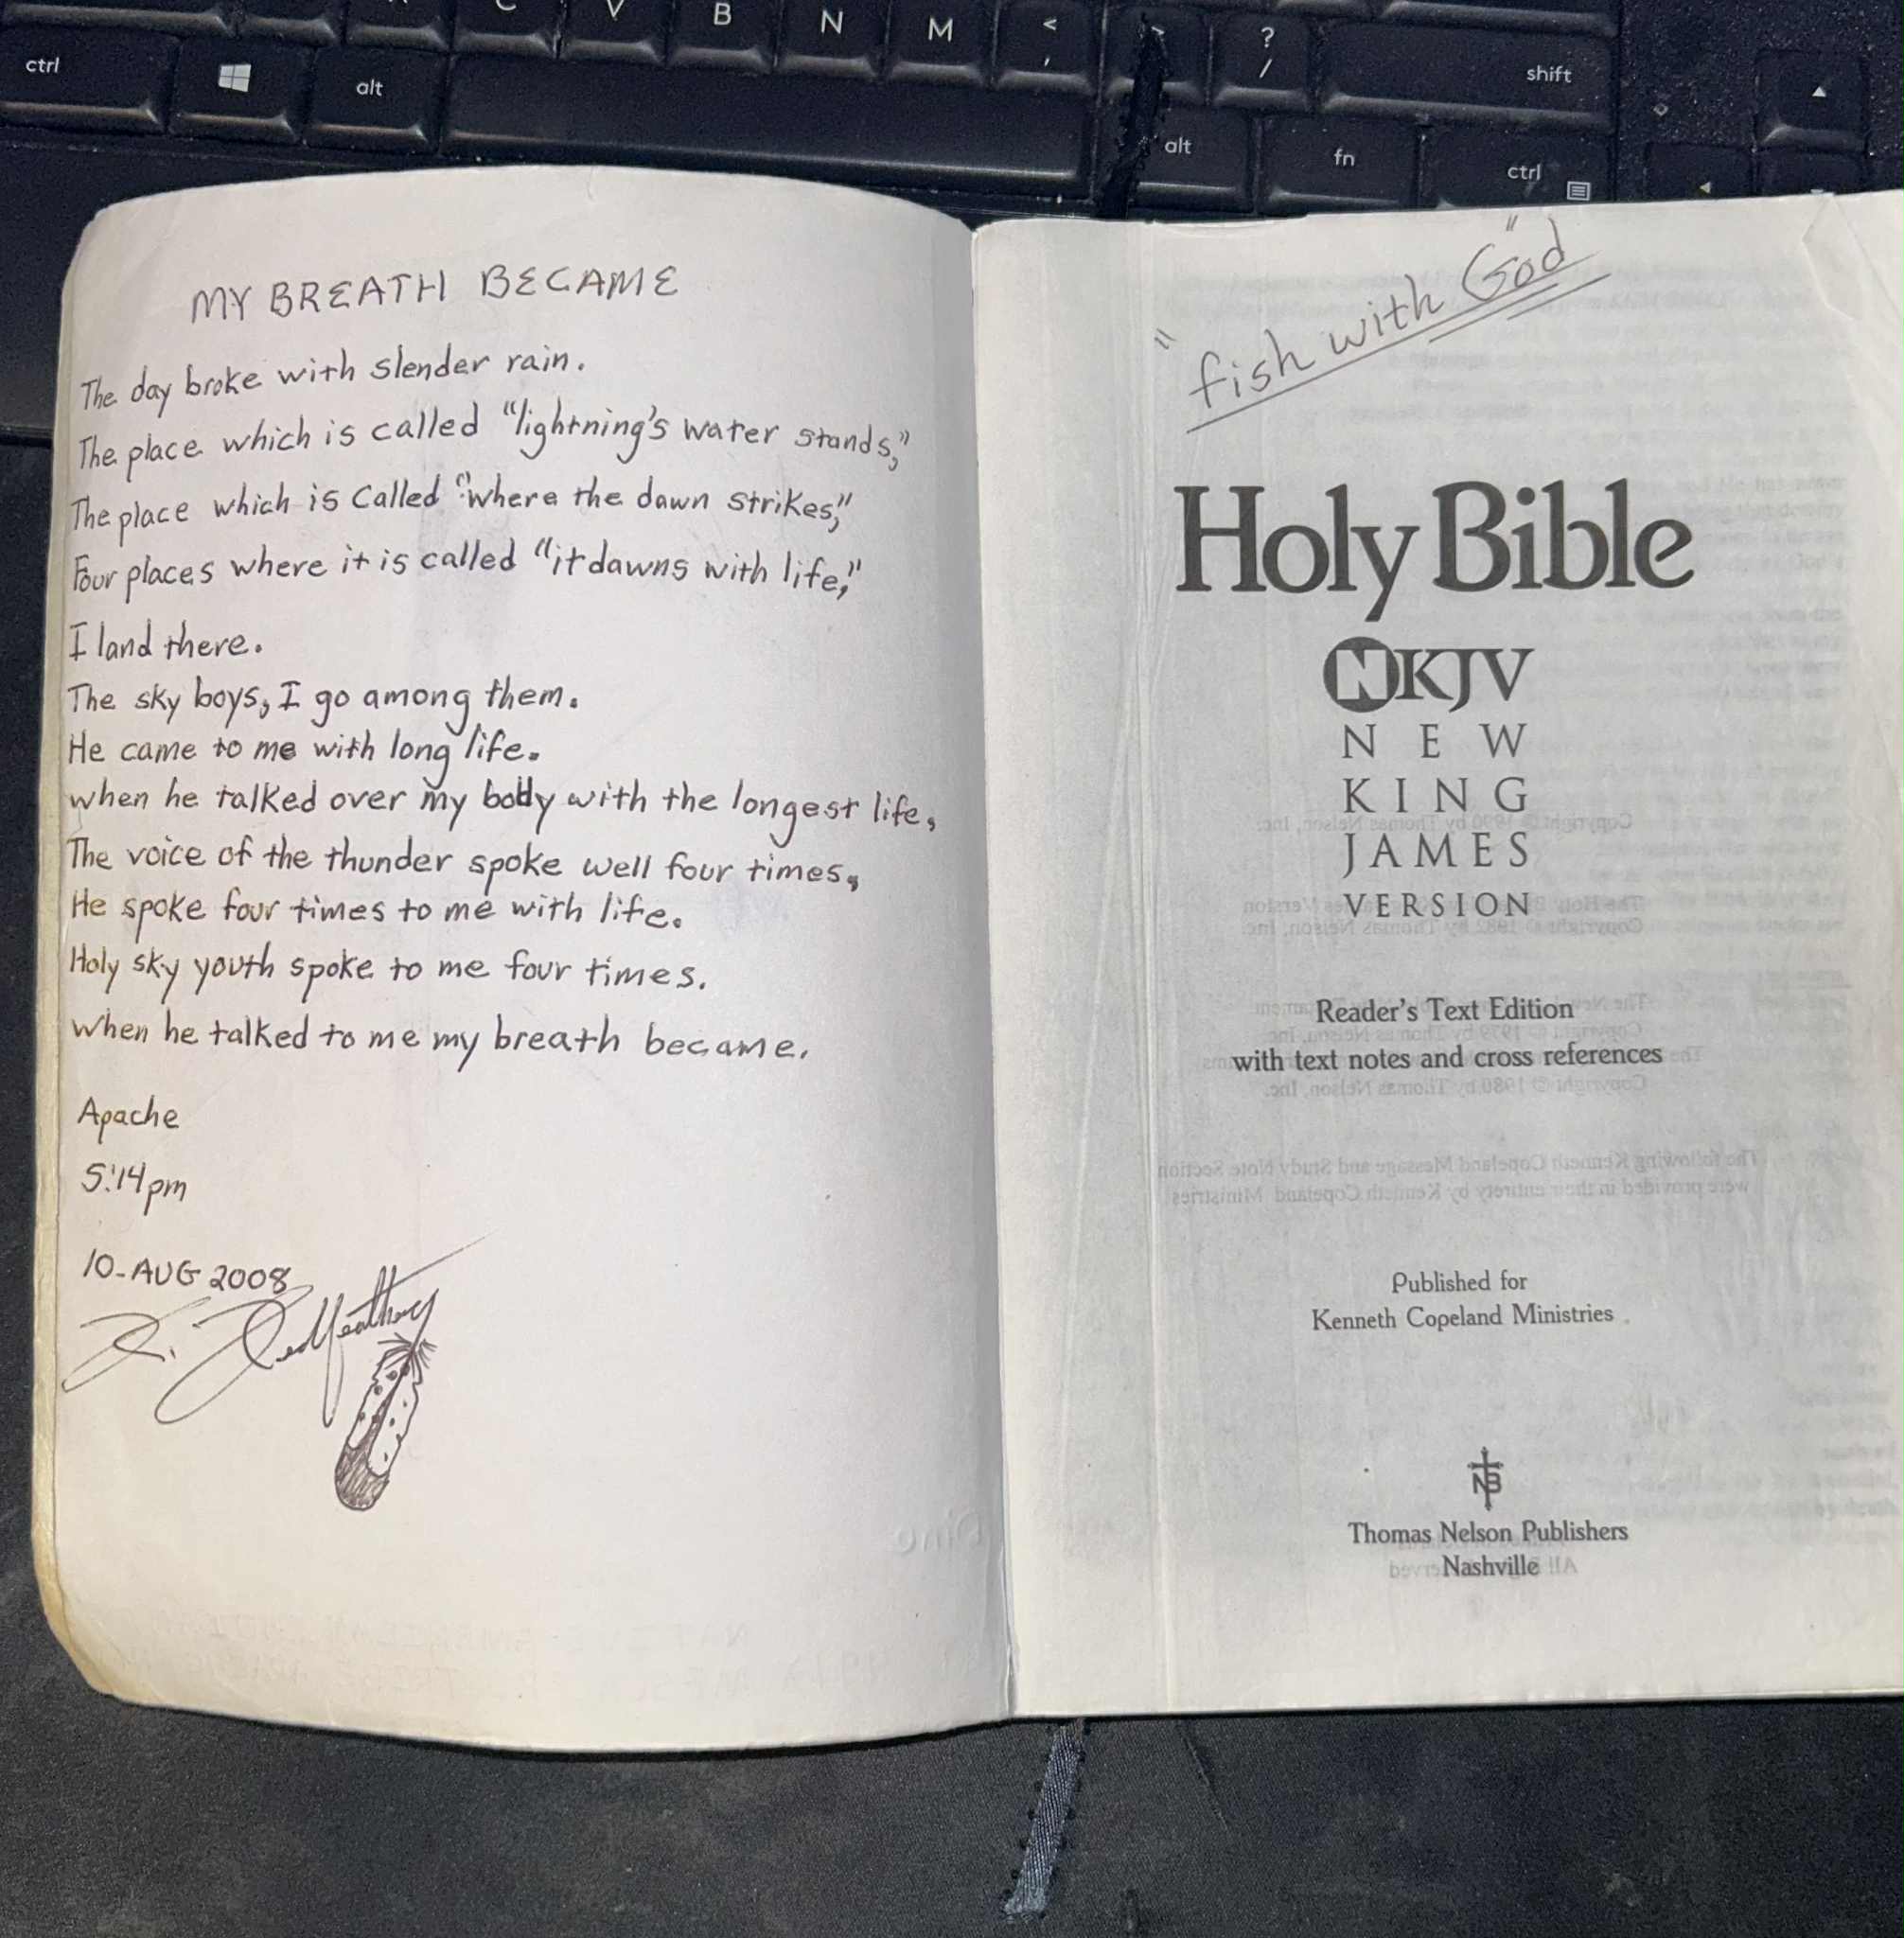 C V B N M < , > ? / shift
ctrl alt alt fn ctrl
MY BREATH BECAME
The day broke with slender rain.
The place which is called "lightning's water stands,"
The place which is Called "where the dawn strikes,"
Four places where it is called "it dawns with life,"
I land there.
The sky boys, I go among them.
He came to me with long life.
when he talked over my body with the longest life,
The voice of the thunder spoke well four times,
He spoke four times to me with life.
Holy sky youth spoke to me four times.
when he talked to me my breath became.
Apache
5:14pm
10-AUG 2008
R. Redfeather
"fish with God"
Holy Bible
NKJV
NEW
KING
JAMES
VERSION
Reader's Text Edition
with text notes and cross references
Published for
Kenneth Copeland Ministries
NB
Thomas Nelson Publishers
Nashville